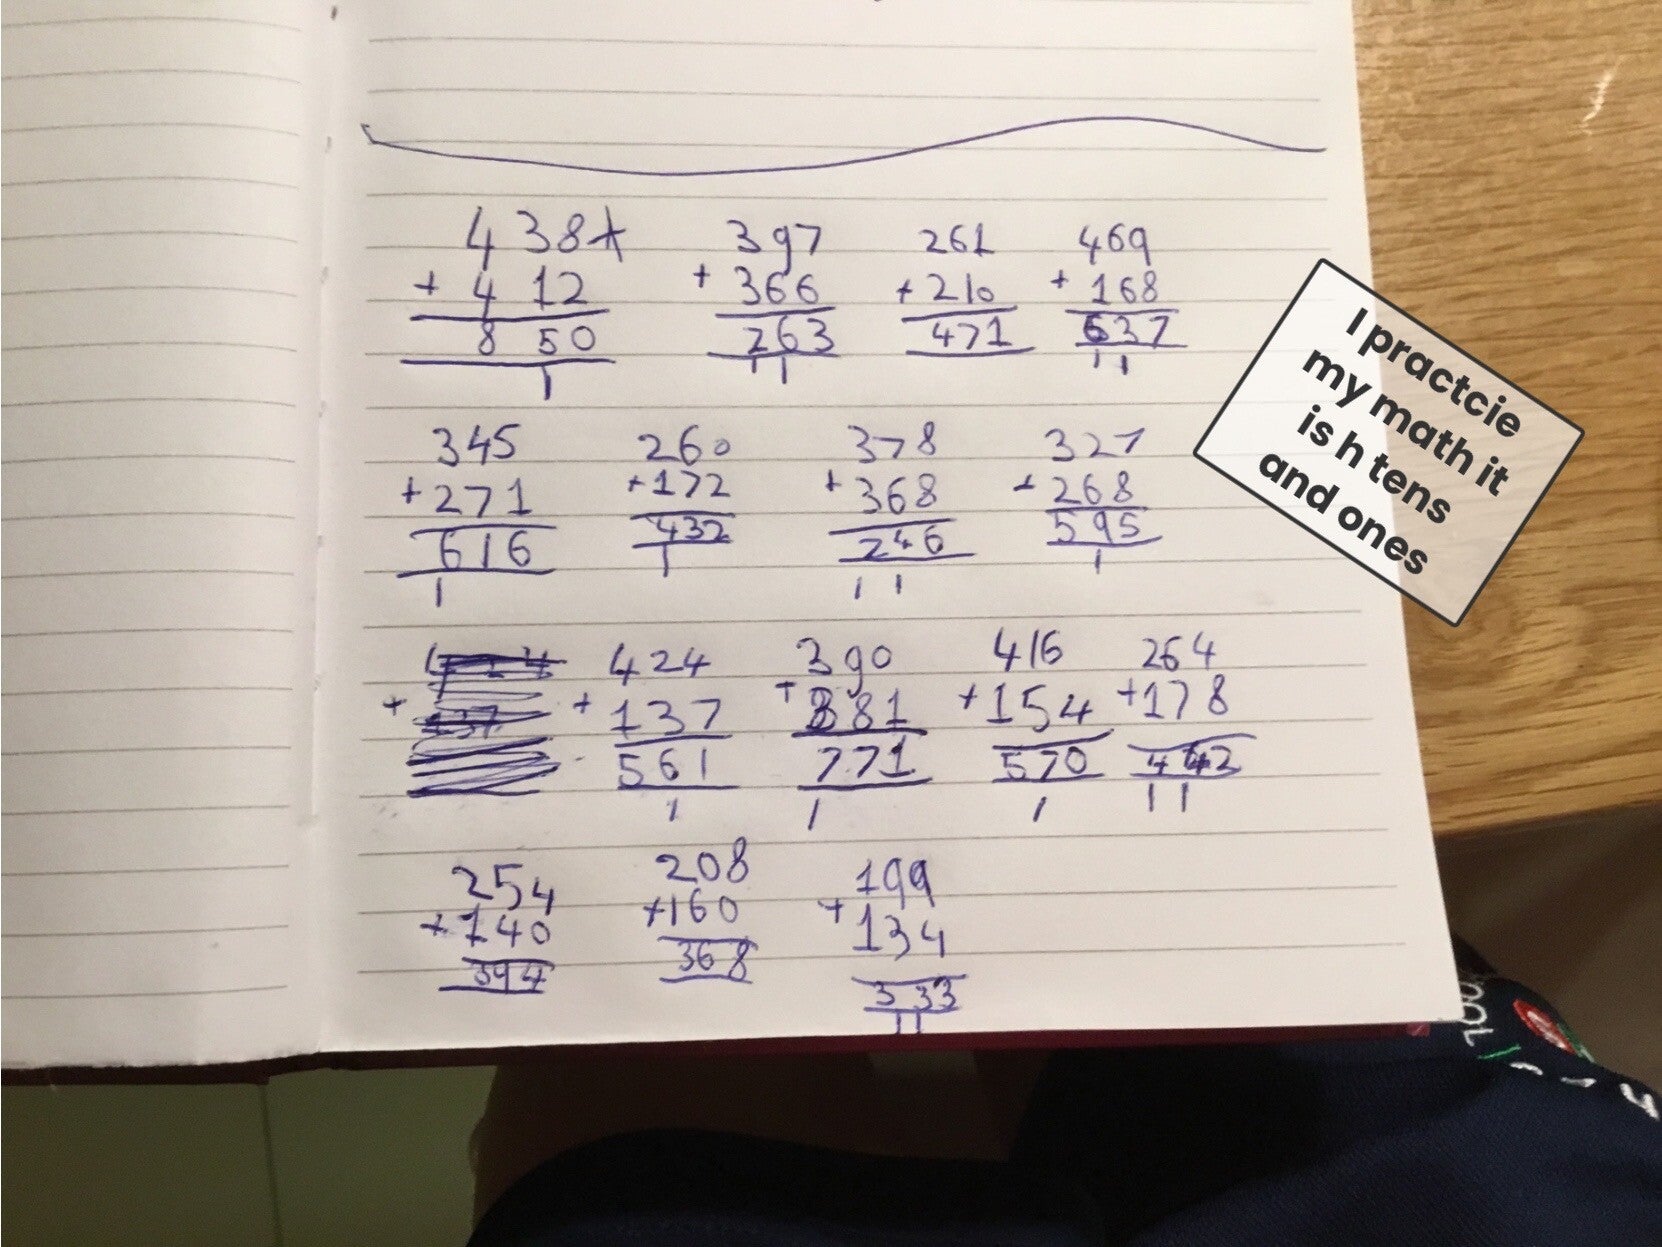 438+ 397 261 469
+ 412 + 366 + 210 + 168
850 263 471 637
1 1 1 1 1
345 260 378 327
+ 271 + 172 + 368 + 268
616 432 246 595
1 1 1 1 1
424 390 416 264
+ + 137 + 381 + 154 + 178
561 771 570 442
1 1 1 1 1
254 208 199
+ 140 + 160 + 134
394 368 333
1 1
I practcie
my math it
is h tens
and ones